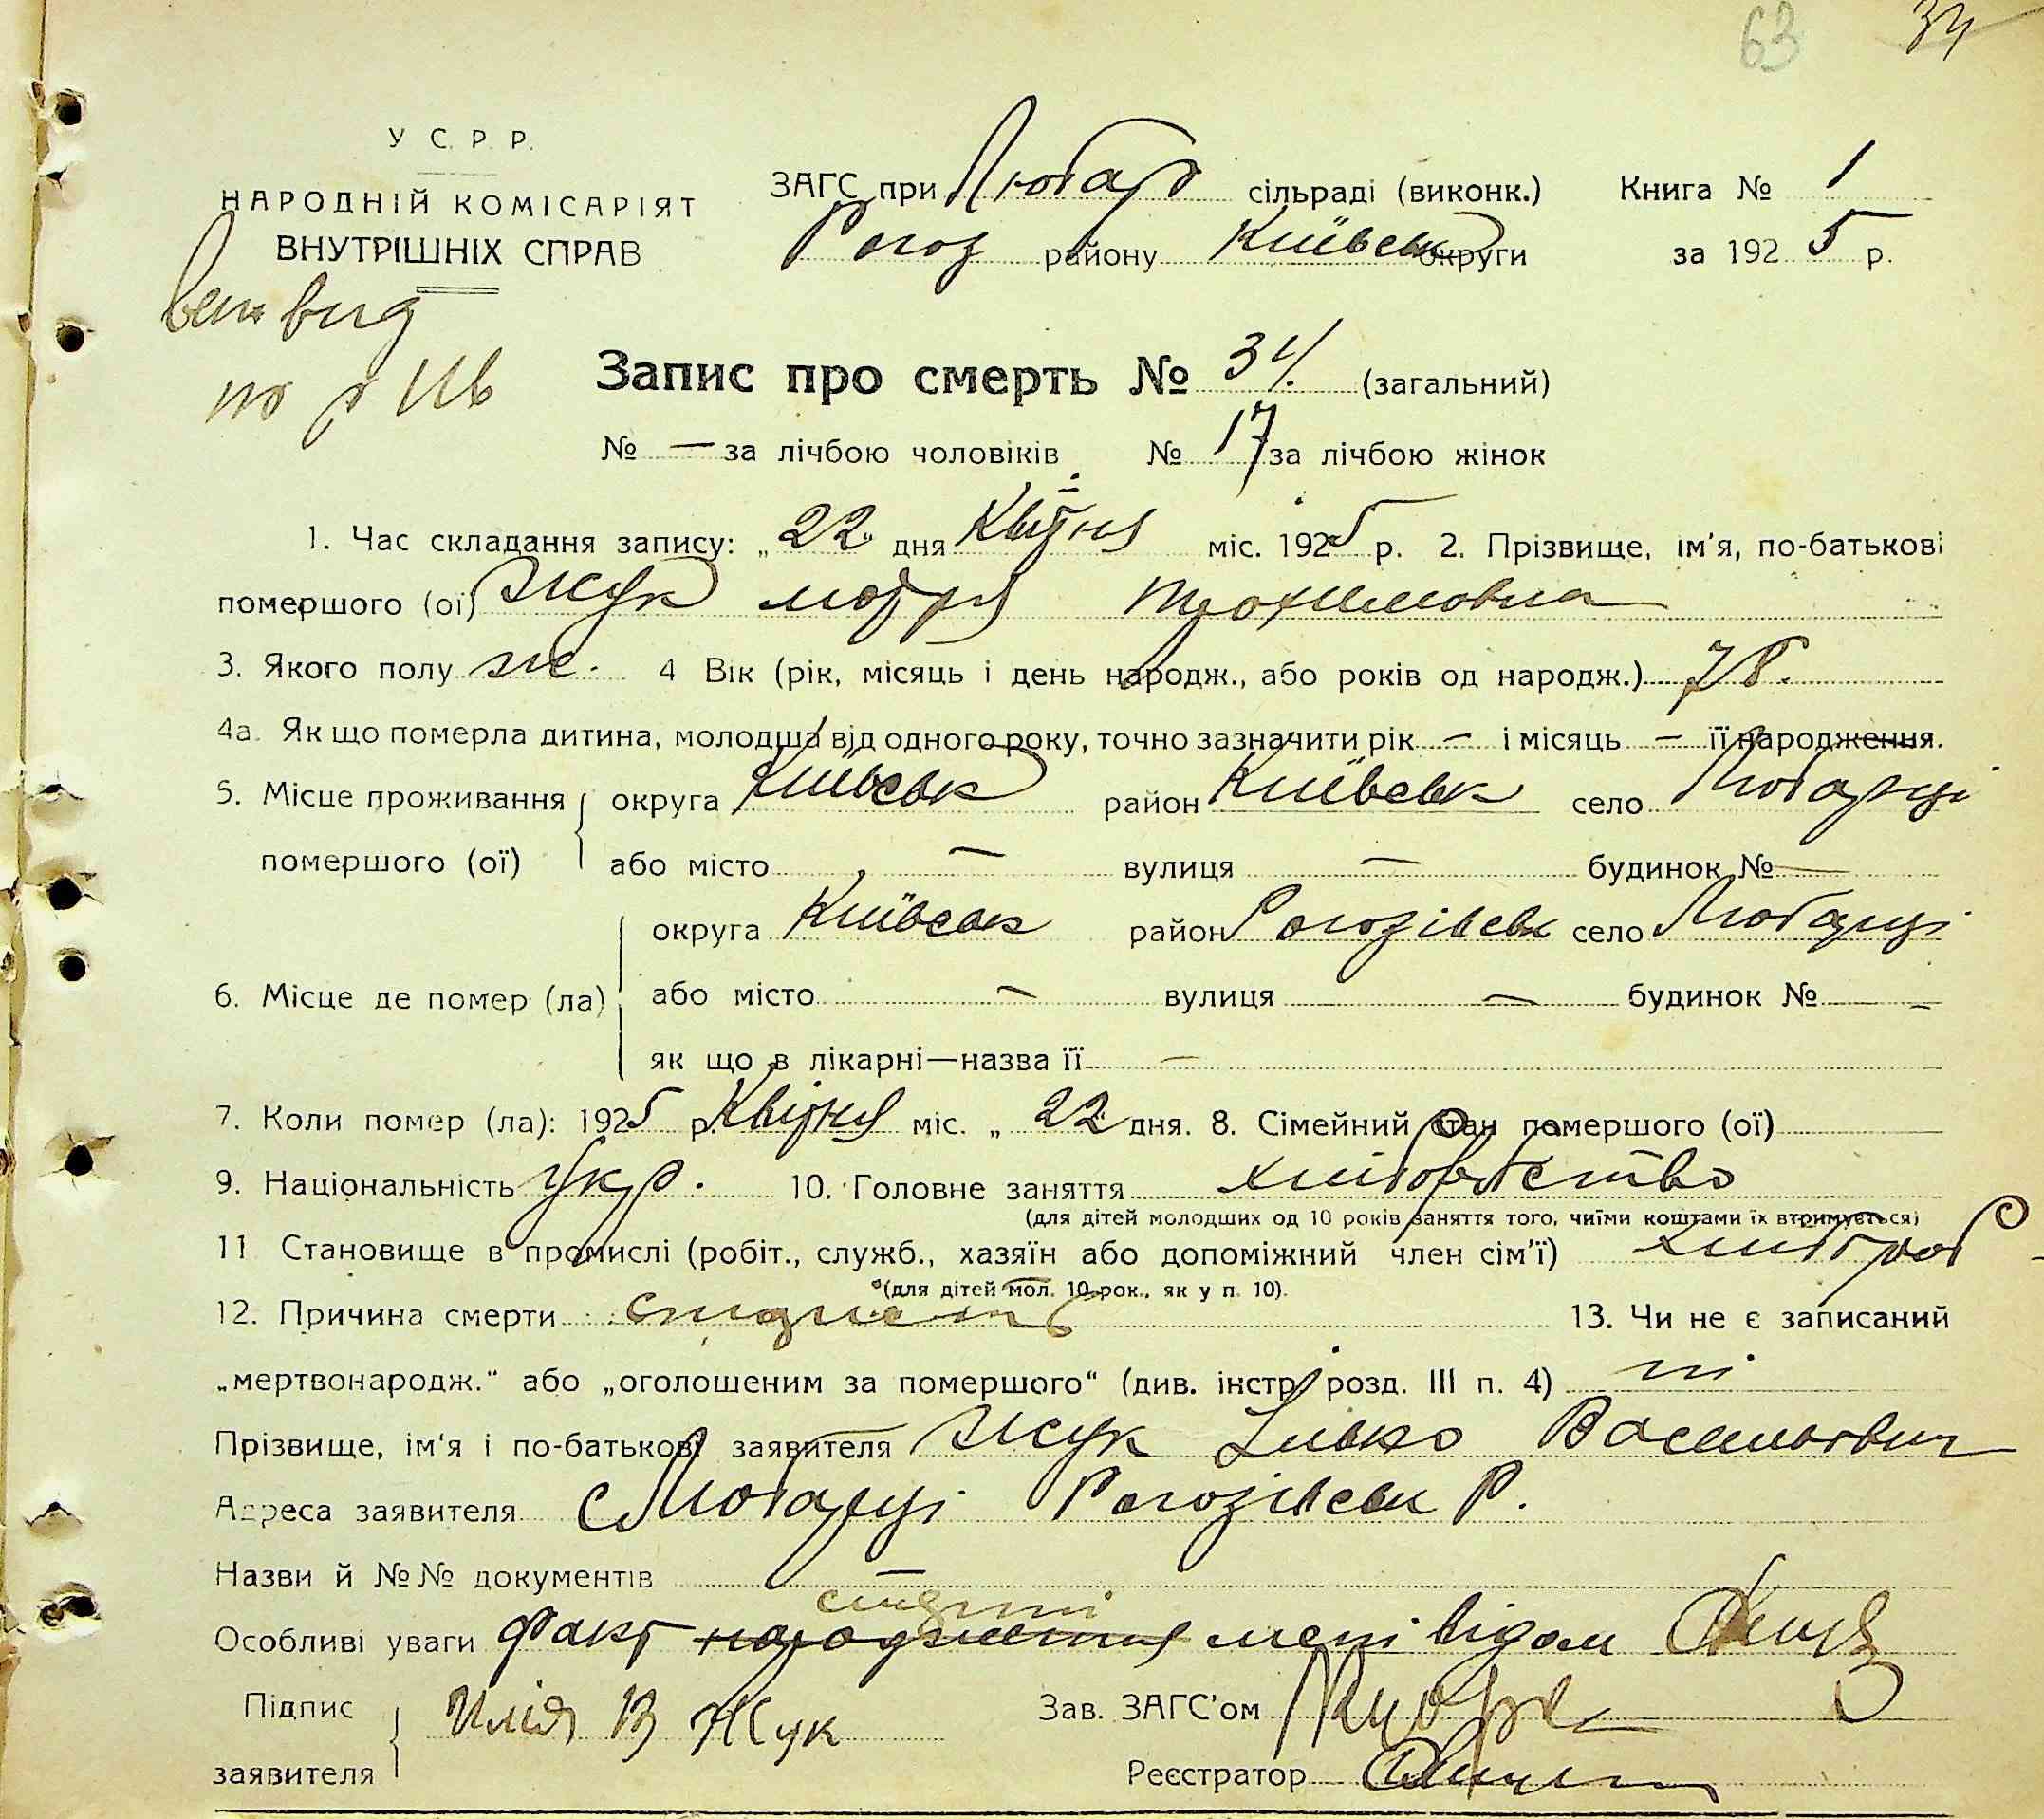 63 34
У С. Р. Р.
НАРОДНІЙ КОМІСАРІЯТ
ВНУТРІШНІХ СПРАВ
ЗАГС при Любар сільраді (виконк.) Книга № 1
Рогоз району Київськ округи за 1925 р.
Запис про смерть № 34. (загальний)
№ — за лічбою чоловіків № 17 за лічбою жінок
1. Час складання запису: „22" дня Квітня міс. 1925 р. 2. Прізвище, ім'я, по-батькові
помершого (ої) Жук Мотря
3. Якого полу ж. 4 Вік (рік, місяць і день народж., або років од народж.) 78.
4а. Як що померла дитина, молодша від одного року, точно зазначити рік — і місяць — її народження.
5. Місце проживання округа Київськ район Київськ село Любарці
помершого (ої) або місто — вулиця — будинок № —
округа Київськ район Рогозівськ село Любарці
6. Місце де помер (ла) або місто — вулиця — будинок № —
як що в лікарні—назва її —
7. Коли помер (ла): 1925 р. Квітня міс. „22" дня. 8. Сімейний стан помершого (ої)
9. Національність Укр. 10. Головне заняття хліборобство
(для дітей молодших од 10 років заняття того, чиїми коштами їх втримується)
11 Становище в промислі (робіт., служб., хазяїн або допоміжний член сім'ї) хлібороб
(для дітей мол. 10 рок., як у п. 10).
12. Причина смерти 13. Чи не є записаний
„мертвонародж." або „оголошеним за помершого" (див. інстр. розд. III п. 4) ні
Прізвище, ім'я і по-батькові заявителя Жук Ілько Васильович
Адреса заявителя с Любарці Рогозівськ Р.
Назви й №№ документів —
смерти
Особливі уваги Факт народження мені відом
Підпис Илія В Жук Зав. ЗАГС'ом
заявителя Реєстратор